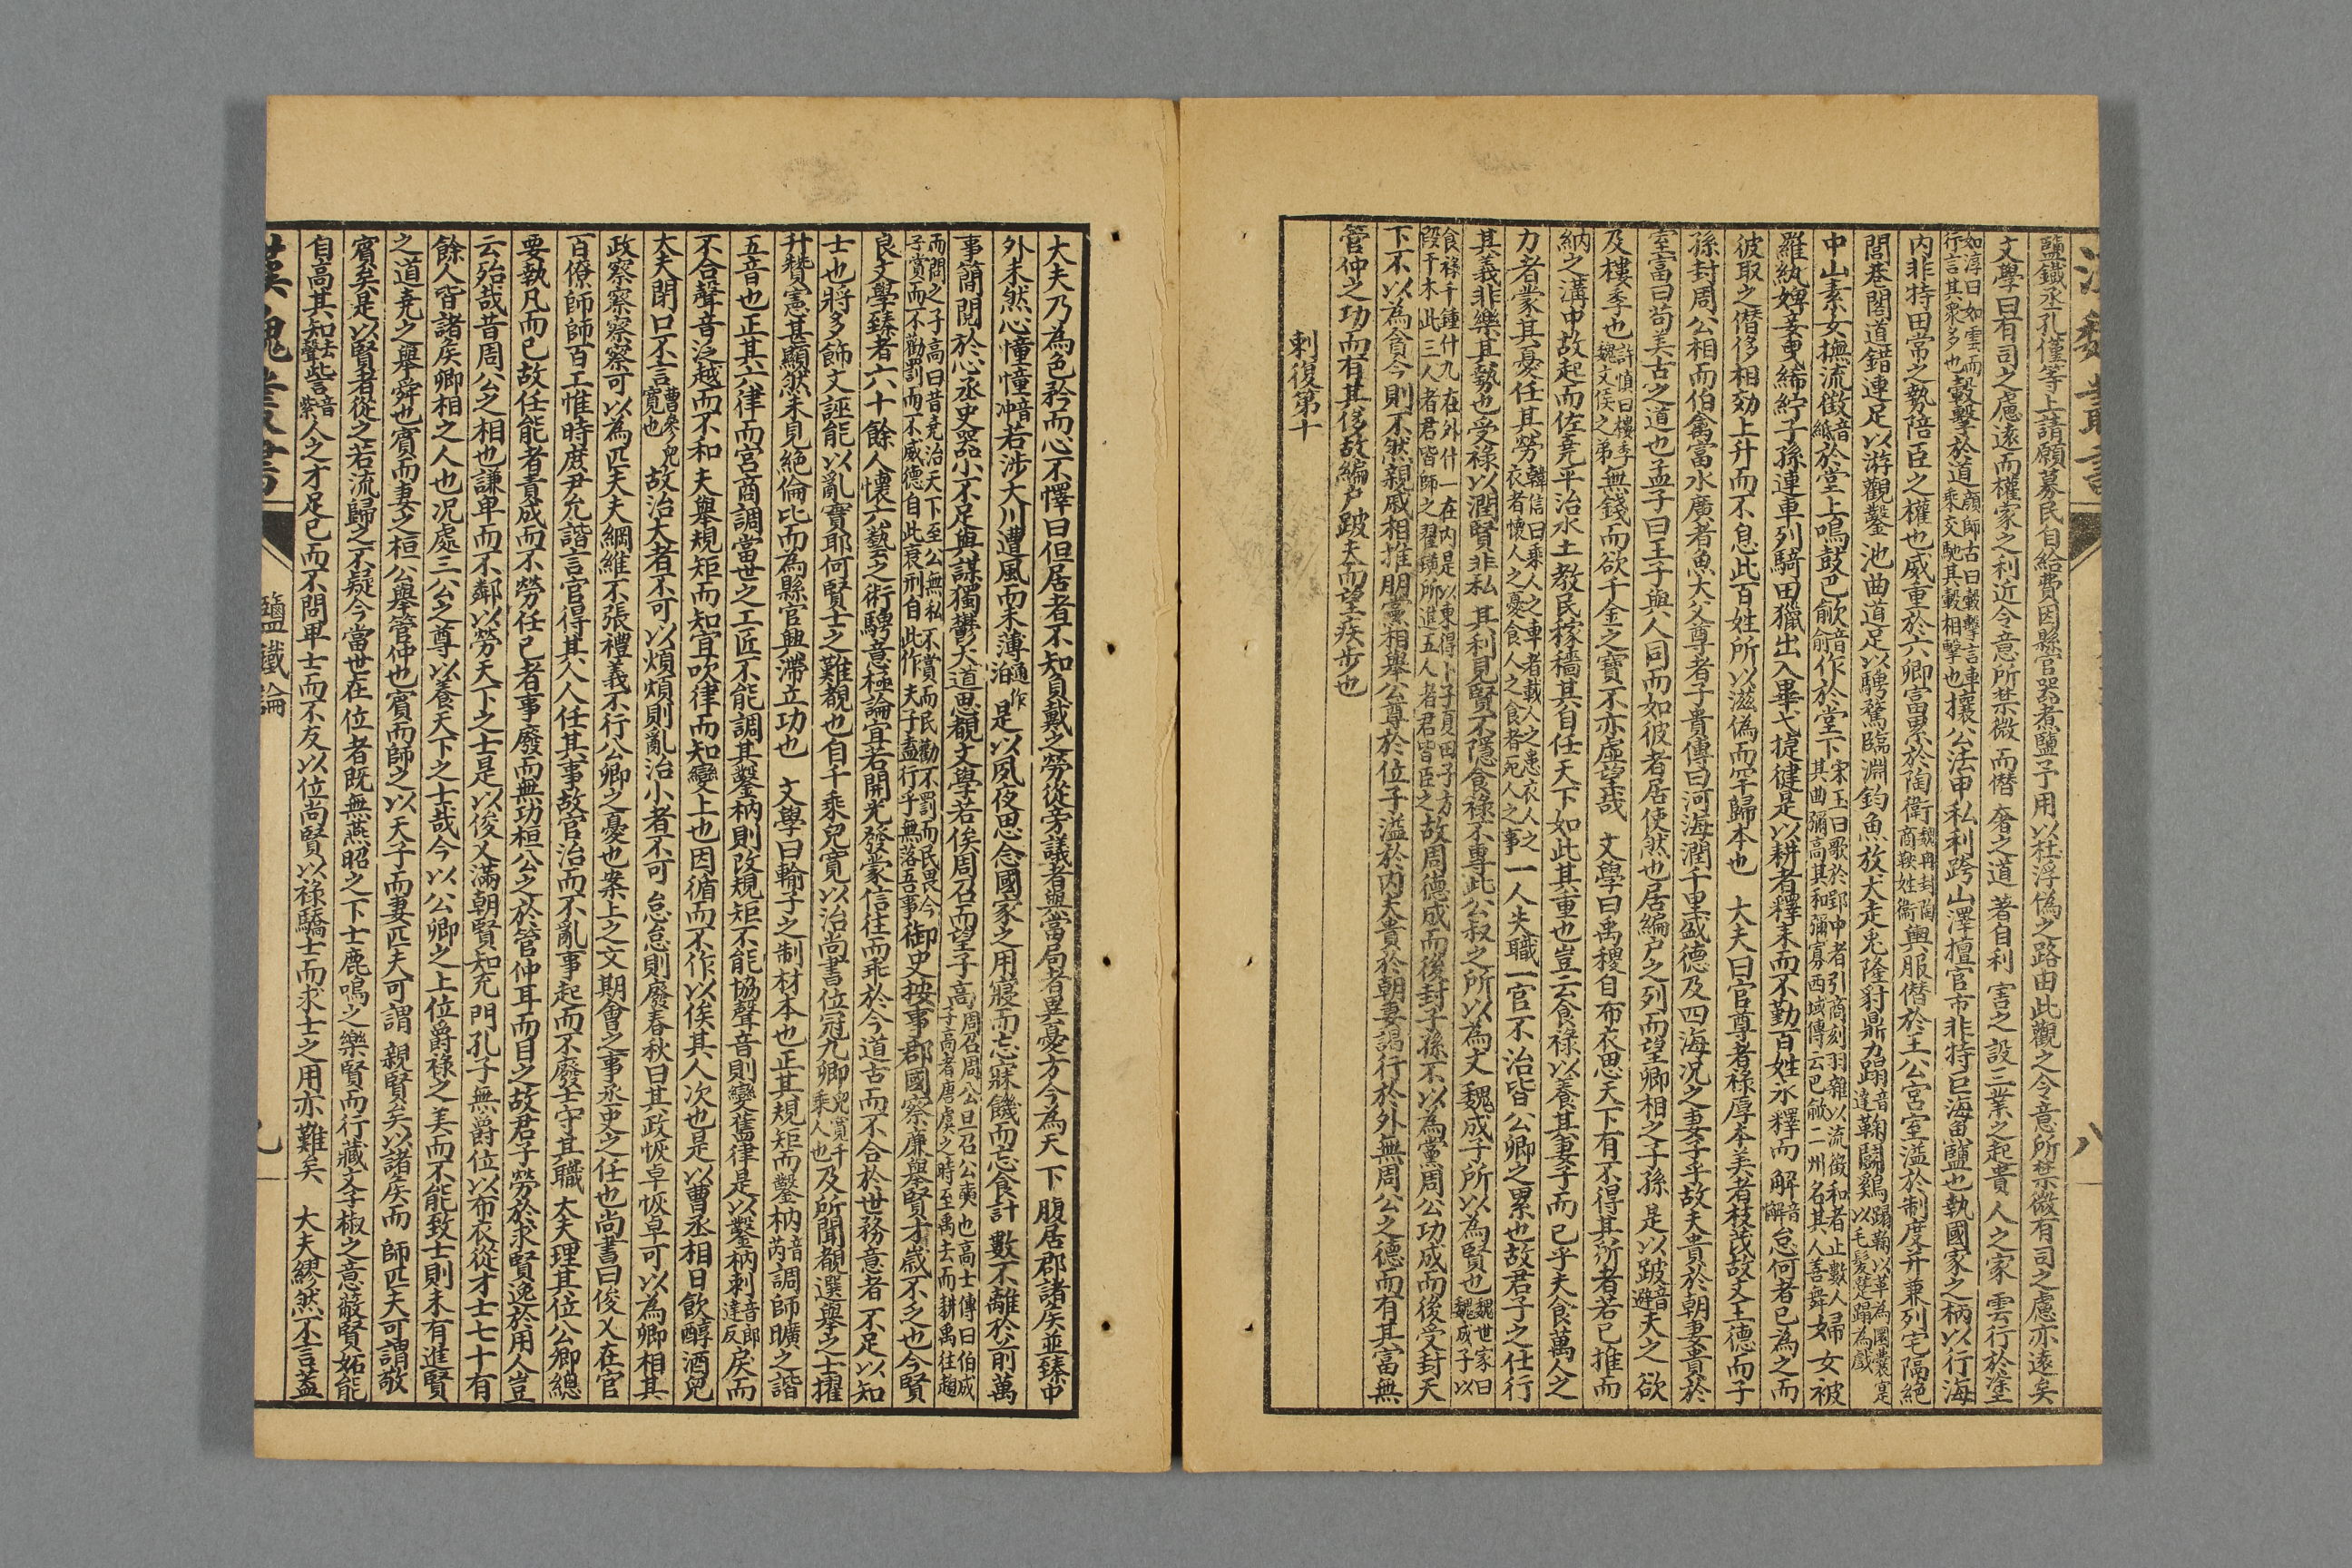 鹽鐵丞孔僅等上請願募民自給費因縣官器煮鹽予用以杜浮偽之路由此觀之令意所禁微有司之慮亦遠矣
文學曰有司之慮遠而權家之利近令意所禁微而僭奢之道著自利害之設三業之起貴人之家雲行於塗
如淳曰如雲而行言其衆多也轂擊於道顏師古曰轂擊言車乘交馳其轂相擊也攘公法申私利跨山澤擅官市非特巨海魚鹽也執國家之柄以行海
內非特田常之勢陪臣之權也威重於六卿富累於陶衛魏冉封陶商鞅姓衛輿服僭於王公宮室溢於制度并兼列宅隔絕
閭巷閣道錯連足以游觀鑿池曲道足以騁騖臨淵釣魚放犬走兔隆豺鼎力蹋音達鞠鬬雞蹋鞠以革為圜囊寔以毛髮蹵蹋為戲
中山素女撫流徵音紙於堂上鳴鼓巴歈音俞作於堂下宋玉曰歌於郢中者引商刻羽雜以流徵和者止數人其曲彌高其和彌寡西域傳云巴歈二州名其人善舞婦女被
羅紈婢妾曳絺紵子孫連車列騎田獵出入畢弋捷健是以耕者釋耒而不勤百姓氷釋而解音懈怠何者已為之而
彼取之僭侈相効上升而不息此百姓所以滋偽而罕歸本也　大夫曰官尊者祿厚本美者枝茂故文王德而子
孫封周公相而伯禽富水廣者魚大父尊者子貴傳曰河海潤千里盛德及四海況之妻子乎故夫貴於朝妻貴於
室富曰苟美古之道也孟子曰王子與人同而如彼者居使然也居編戶之列而望卿相之子孫是以跛音避夫之欲
及樓季也許慎曰樓季魏文侯之弟無錢而欲千金之寶不亦虛望哉　文學曰禹稷自布衣思天下有不得其所者若已推而
納之溝中故起而佐堯平治水土教民稼穡其自任天下如此其重也豈云食祿以養其妻子而已乎夫食萬人之
力者蒙其憂任其勞韓信曰乘人之車者載人之患衣人之衣者懷人之憂食人之食者死人之事一人失職一官不治皆公卿之累也故君子之仕行
其義非樂其勢也受祿以潤賢非私其利見賢不隱食祿不專此公叔之所以為文魏成子所以為賢也魏世家曰魏成子以
食祿千鍾什九在外什一在內是以東得卜子夏田子方段干木此三人者君皆師之翟璜所進五人者君皆臣之故周德成而後封子孫不以為黨周公功成而後受封天
下不以為貪今則不然親戚相推朋黨相舉父尊於位子溢於內夫貴於朝妻謁行於外無周公之德而有其富無
管仲之功而有其侈故編戶跛夫而望疾步也
刺復第十
大夫乃為色矜而心不懌曰但居者不知負戴之勞從旁議者與當局者異憂方今為天下腹居郡諸矦並臻中
外未然心憧憧音沖若涉大川遭風而未薄通作泊是以夙夜思念國家之用寢而忘寐饑而忘食計數不離於前萬
事簡閱於心丞史器小不足與謀獨鬱大道思覩文學若俟周召而望子高周召周公旦召公奭也高士傳曰伯成子高者唐虞之時至禹去而耕禹往趨
而問之子高曰昔堯治天下至公無私不賞而民勸不罰而民畏今子賞而不勸罰而不威德自此衰刑自此作夫子盍行乎無落吾事御史按事郡國察廉舉賢才歲不乏也今賢
良文學臻者六十餘人懷六藝之術騁意極論宜若開光發蒙信往而乖於今道古而不合於世務意者不足以知
士也將多飾文誣能以亂實耶何賢士之難覩也自千乘兒寬以治尚書位冠九卿兒寬千乘人也及所聞覩選舉之士擢
升贊憲甚顯然未見絕倫比而為縣官興滯立功也　文學曰輸子之制材木也正其規矩而鑿枘音芮調師曠之諧
五音也正其六律而宮商調當世之工匠不能調其鑿枘則改規矩不能協聲音則變舊律是以鑿枘刺音郎達反戾而
不合聲音泛越而不和夫舉規矩而知宜吹律而知變上也因循而不作以俟其人次也是以曹丞相日飲醇酒兒
大夫閉口不言曹參兒寬也故治大者不可以煩煩則亂治小者不可怠怠則廢春秋曰其政恢卓恢卓可以為卿相其
政察察察察可以為匹夫夫綱維不張禮義不行公卿之憂也案上之文期會之事丞史之任也尚書曰俊乂在官
百僚師師百工惟時庶尹允諧言官得其人人任其事故官治而不亂事起而不廢士守其職大夫理其位公卿總
要執凡而已故任能者責成而不勞任已者事廢而無功桓公之於管仲耳而目之故君子勞於求賢逸於用人豈
云殆哉昔周公之相也謙卑而不鄰以勞天下之士是以俊乂滿朝賢知充門孔子無爵位以布衣從才士七十有
餘人皆諸矦卿相之人也況處三公之尊以養天下之士哉今以公卿之上位爵祿之美而不能致士則未有進賢
之道堯之舉舜也賓而妻之桓公舉管仲也賓而師之以天子而妻匹夫可謂親賢矣以諸矦而師匹夫可謂敬
賓矣是以賢者從之若流歸之不疑今當世在位者既無燕昭之下士鹿鳴之樂賢而行臧文子椒之意蔽賢妬能
自高其知訾音紫人之才足已而不問卑士而不友以位尚賢以祿驕士而求士之用亦難矣　大夫繆然不言蓋
漢魏叢書
鹽鐵論
八